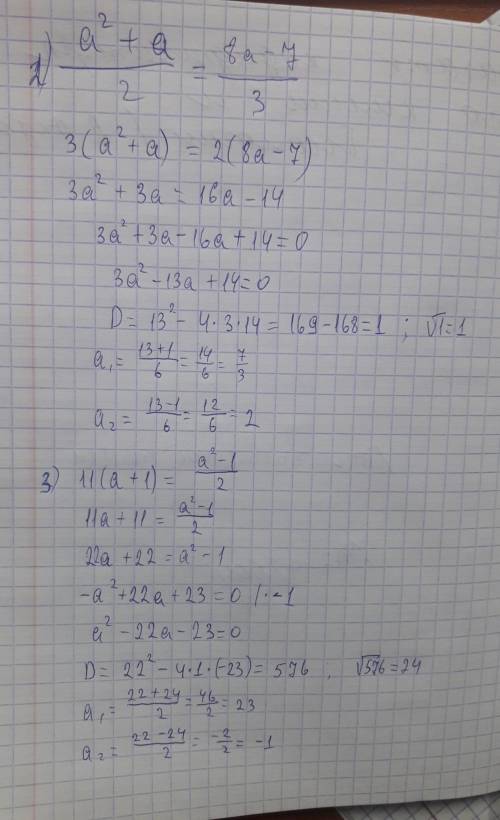 2) (a² + a)/2 = (8a - 7)/3
3(a² + a) = 2(8a - 7)
3a² + 3a = 16a - 14
3a² + 3a - 16a + 14 = 0
3a² - 13a + 14 = 0
D = 13² - 4·3·14 = 169 - 168 = 1 ; √1 = 1
a₁ = (13+1)/6 = 14/6 = 7/3
a₂ = (13-1)/6 = 12/6 = 2
3) 11(a + 1) = (a² - 1)/2
11a + 11 = (a² - 1)/2
22a + 22 = a² - 1
-a² + 22a + 23 = 0 /·-1
a² - 22a - 23 = 0
D = 22² - 4·1·(-23) = 576 ; √576 = 24
a₁ = (22 + 24)/2 = 46/2 = 23
a₂ = (22 - 24)/2 = -2/2 = -1